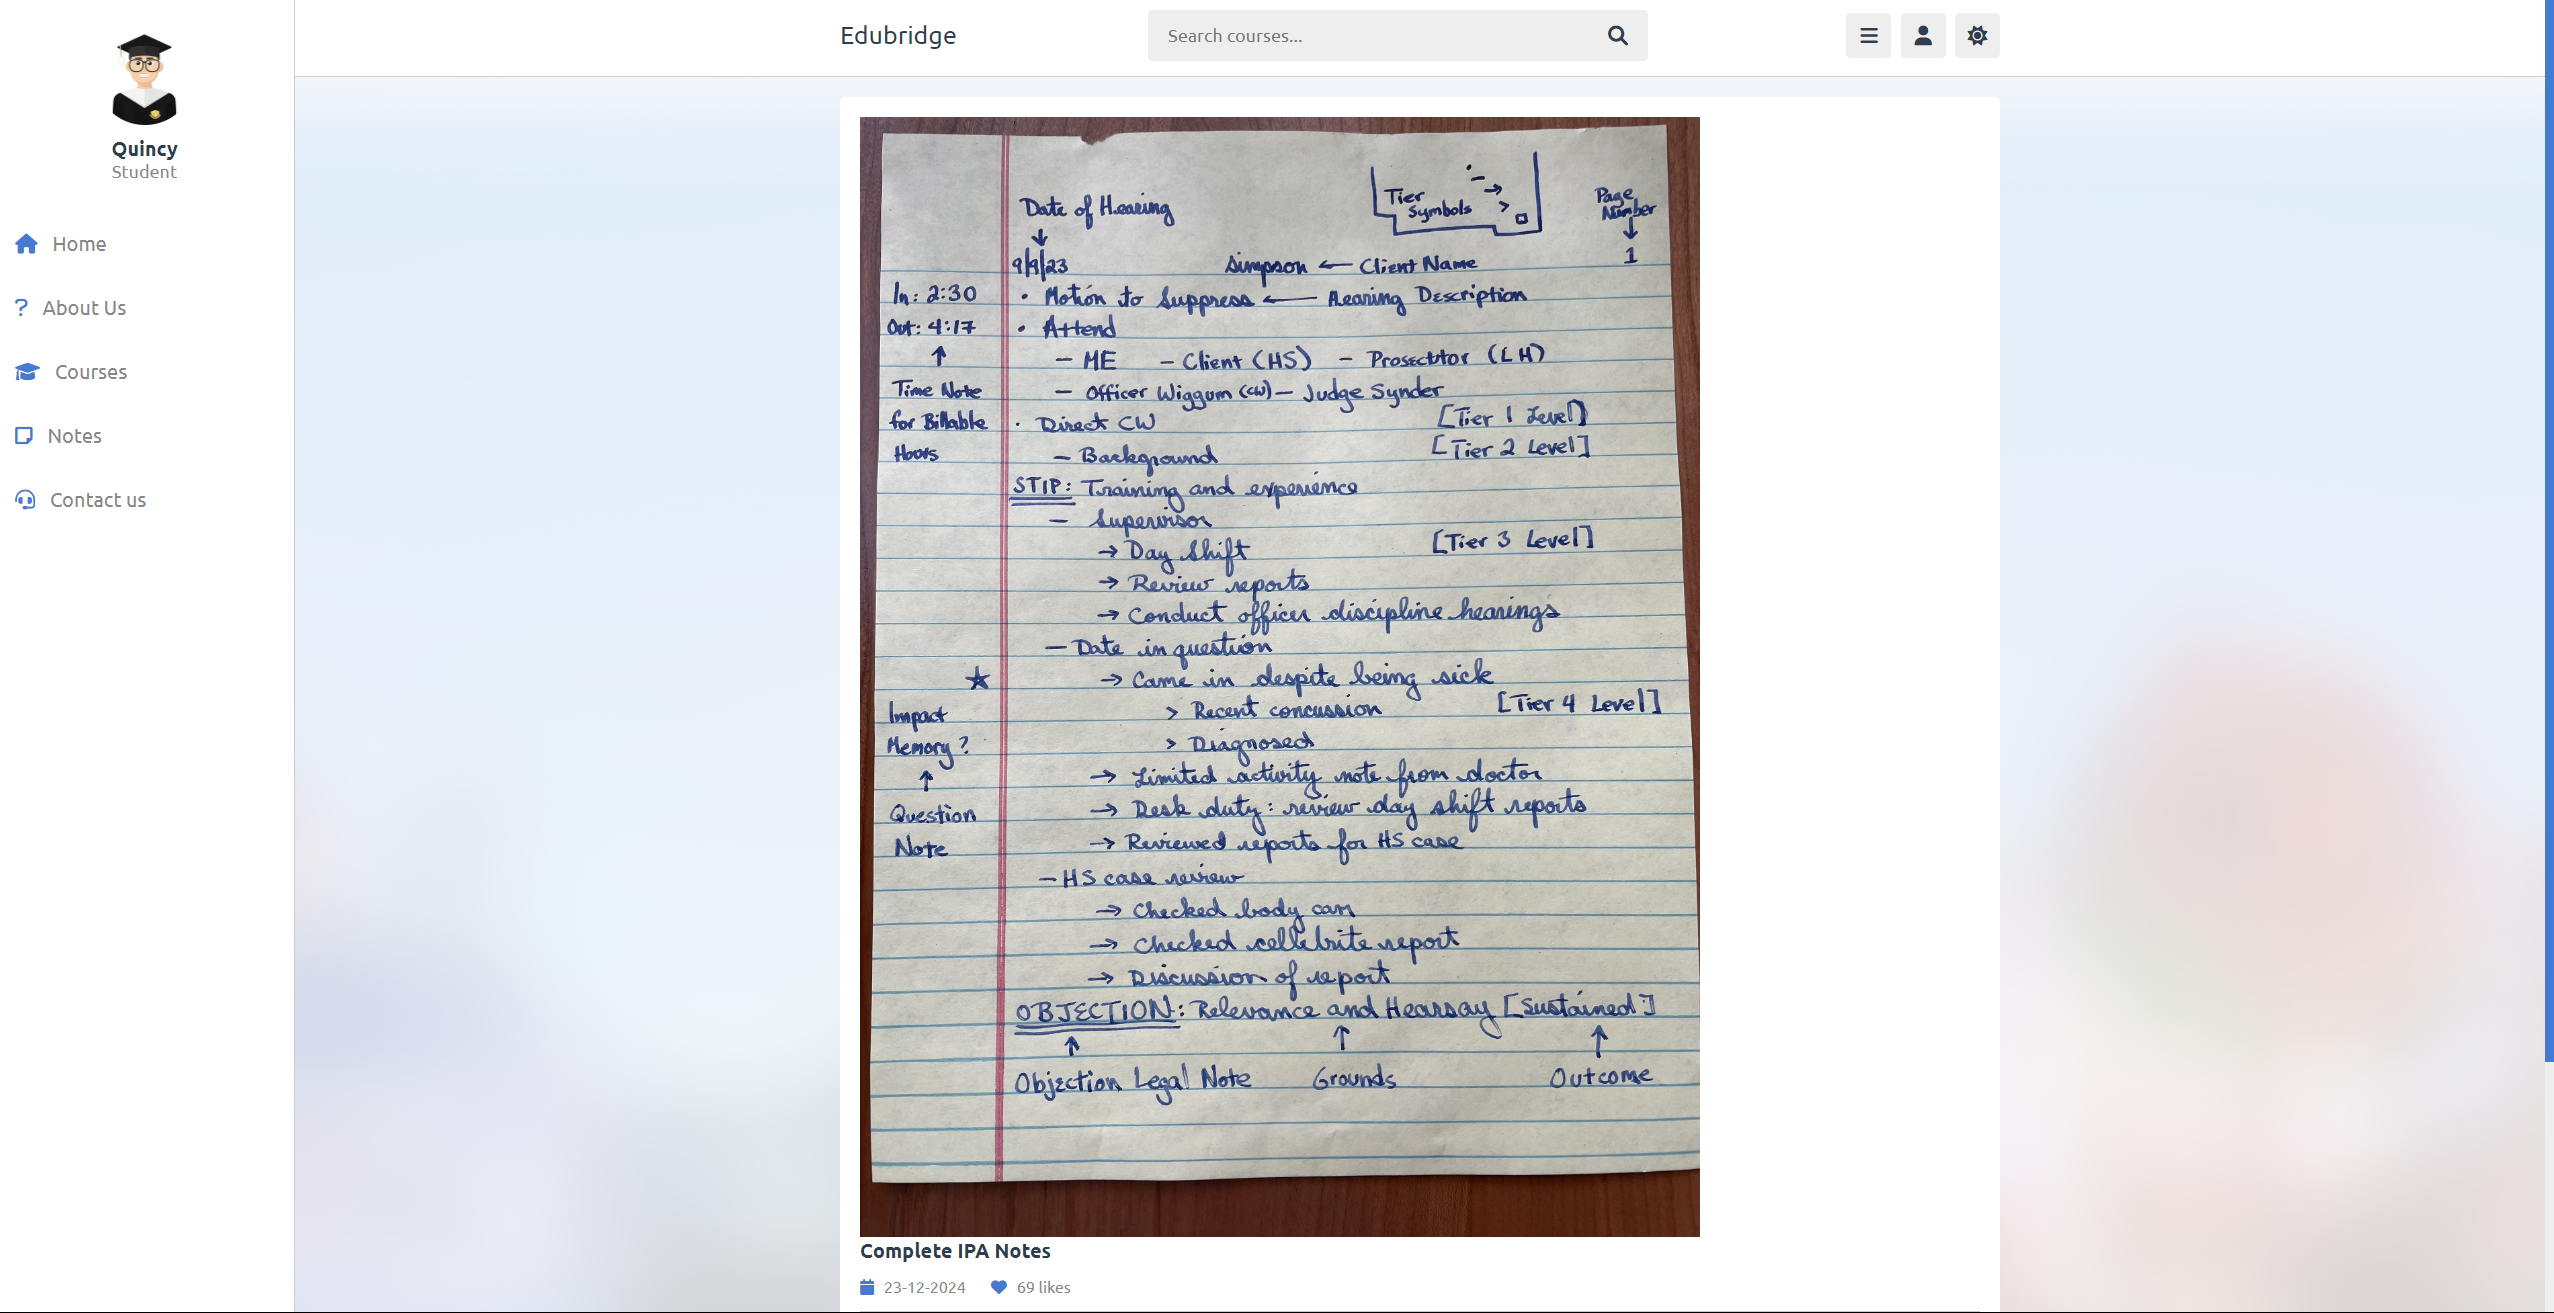 Edubridge
Search courses...
Quincy
Student
Home
About Us
Courses
Notes
Contact us
Date of Hearing
Tier
Symbols
Page
Number
9/9/23
Simpson ← Client Name
1
In: 2:30
• Motion to Suppress ← Hearing Description
Out: 4:17
• Attend
– ME – Client (HS) – Prosecutor (LH)
Time Note
– Officer Wiggum (CW) – Judge Synder
for Billable
• Direct CW [Tier 1 Level]
Hours
– Background [Tier 2 Level]
STIP: Training and experience
– Supervisor
→ Day Shift [Tier 3 Level]
→ Review reports
→ Conduct officer discipline hearings
– Date in question
★ → Came in despite being sick
Impact
> Recent concussion [Tier 4 Level]
Memory?
> Diagnosed
→ Limited activity note from doctor
Question
→ Desk duty: review day shift reports
Note
→ Reviewed reports for HS case
– HS case review
→ Checked body cam
→ Checked cellebrite report
→ Discussion of report
OBJECTION: Relevance and Hearsay [Sustained]
Objection Legal Note Grounds Outcome
Complete IPA Notes
23-12-2024 69 likes